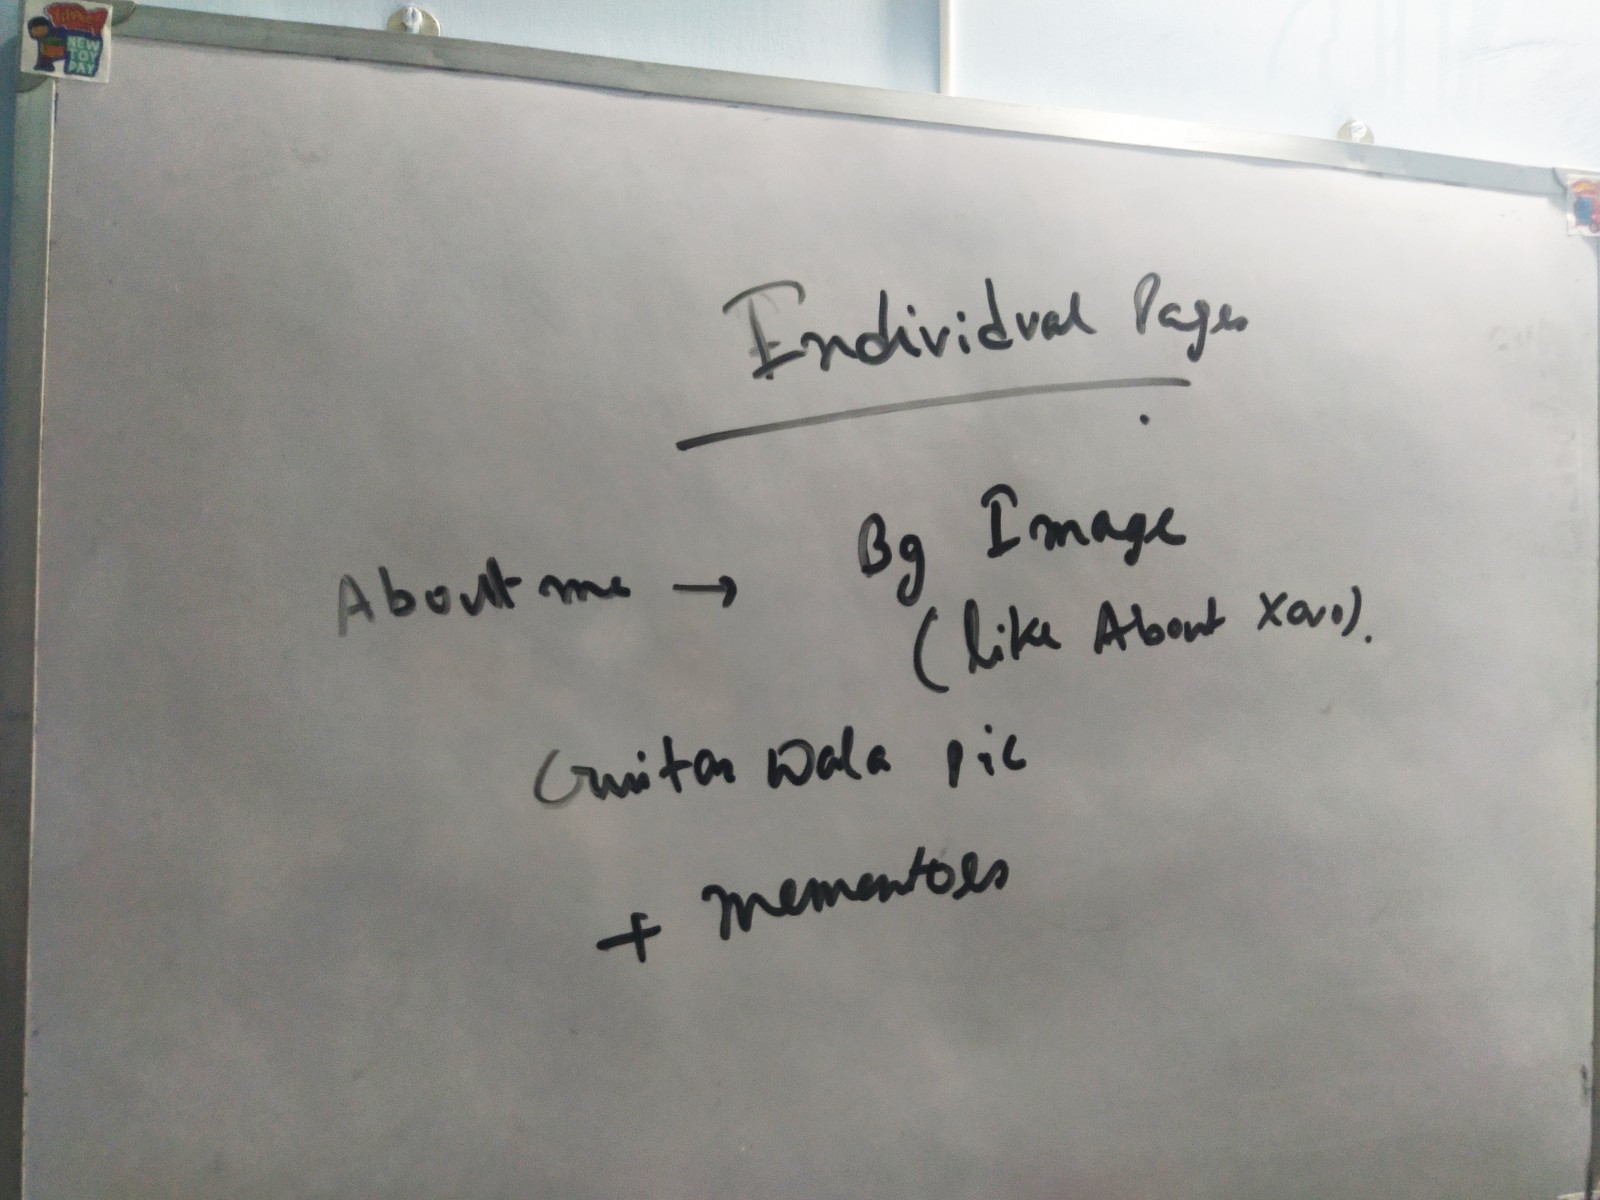 NEW
TOY
DAY
Individual Pages
About me → Bg Image
(like About
Guitar wala pic
+ mementoes